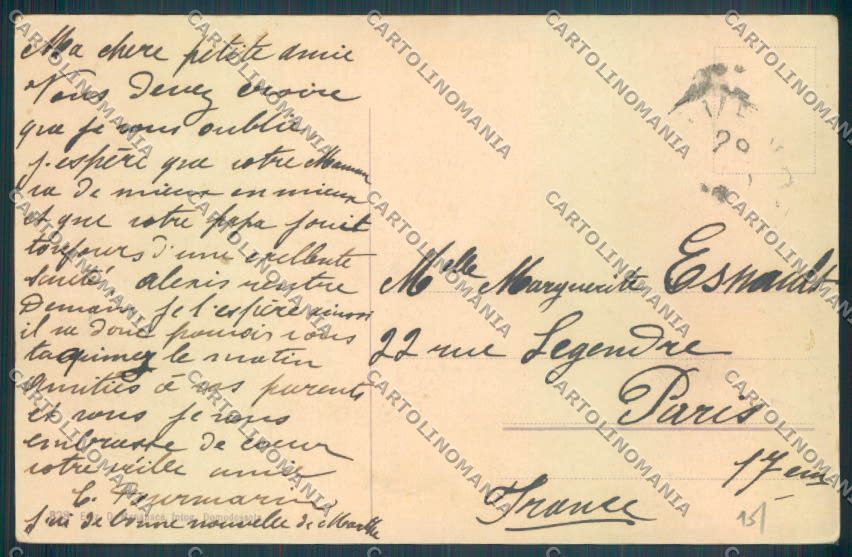 Ma chere petite amie
Vous devez croire
que je vous oublie
j'espère que votre Maman
va de mieux en mieux
et que votre papa jouit
toujours d'une exellente
santé. alexis rentre
Demain je l'espère ainsi
il va donc pouvoir vous
taquinez le matin
Amitiés à vos parents
et vous je vous
embrasse de coeur
votre vieille amie
C.
j'ai de bonne nouvelle de
Melle Marguerite
22 rue Legendre
Paris
17 em
France
15/
CARTOLINOMANIA